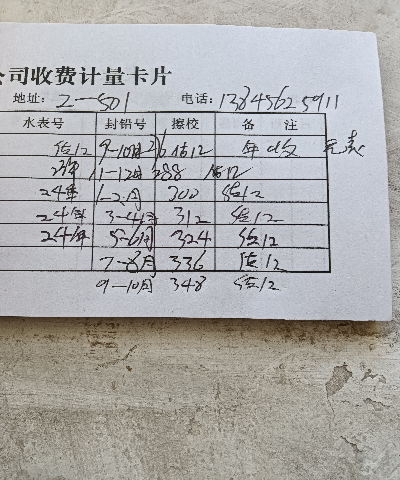 公司收费计量卡片
地址: 2-501 电话: 13845625911
水表号 封铅号 擦校 备 注
估12 9-10月 276 估12 年收 无表
23年 11-12月 288 估12
24年 1-2月 300 估12
24年 3-4月 312 估12
24年 5-6月 324 估12
7-8月 336 估12
9-10月 348 估12